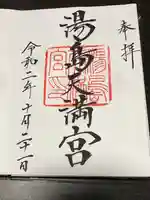 奉拝
湯島天満宮
令和二年十月二十一日